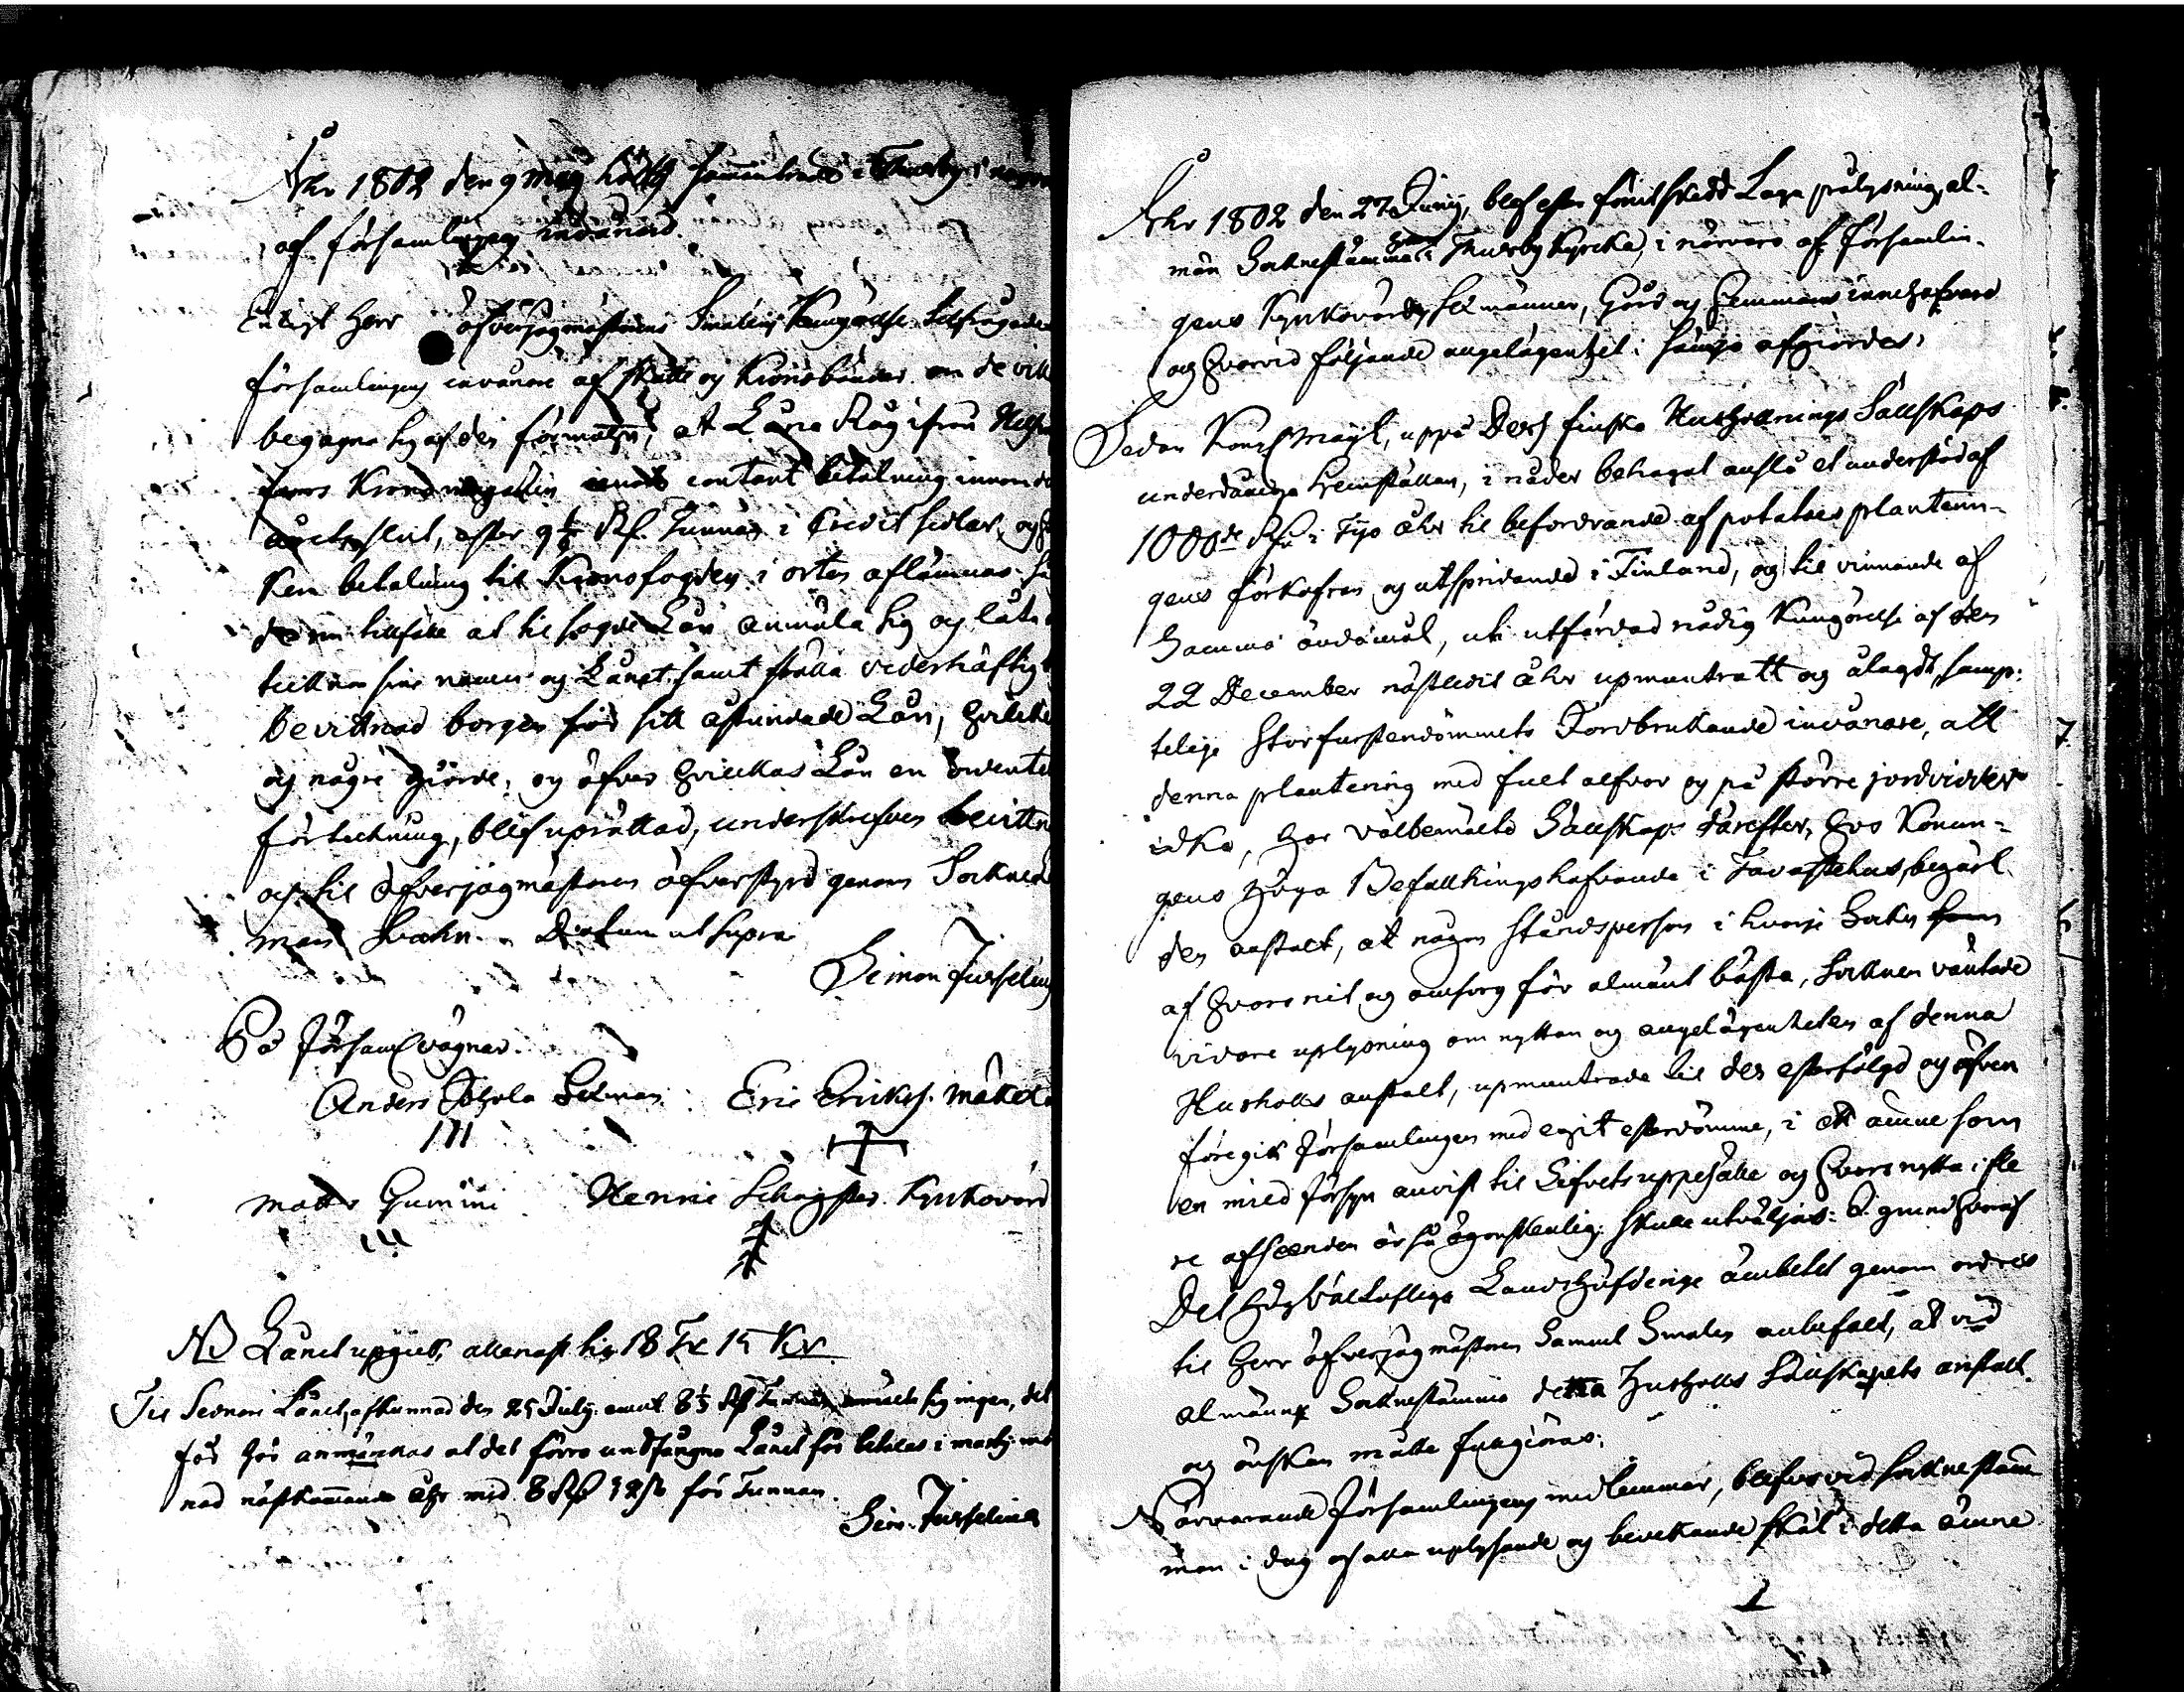 Åhr 1802 den 9 Maji hölts sammanträde i Thusby i närva
af församlingens invånare.
Enligt Herr öfverjägmästarens Smaléns Kungörelse tilfrågades
församlingens invånare af skatte og Kronobönder om de vil
begagna sig af den förmohn, at Låna Råg ifrån Helsing
fors Krono magasin emot contant betalning innom
årets slut, efter 9 1/6 Rd. Tunnan i Credit sedlar, og
ken betalning til Kronofogden i orten aflämnas.
tillfälle at til sogde Lån anmäla sig og låta
tekna sine namn og Lånet samt ställa vederhäftig
bevittnad borgen för sitt åstundade Lån, hvilket
og någre giörde, og öfver hvilckas Lån en ordente
förtekning, blef uprättad, underskrefven bevittn
og til öfverjägmästaren öfverstyrd genom Sockne
man Svahn. Datum ut supra
Simon Jurselius
På Församl vägnar.
Anders Tohola Sexman. Eric Ericks. Mäkelä
Matts Gummi Henric Skogster Kyrkovärd
NB Lånet upgick allenast til 18 Tr 15 Kr.
Til Sednare Lånet, afkunnad den 25 July emot 8 1/3 Rd Tunnan, anmälte sig ingen, det
för här anmärkas at det förra undfångne Lånet för betalas i Martij må
nad nästkommande åhr med 8 Rd 12 s för Tunnan.
Sim. Jurselius
Åhr 1802 den 27 Junij, blef efter förut skedd Laga pålysning, al-
män Sockne stämma i Thusby Kyrcka, i närvaro af Församlin-
gens Kyrkovärdar, Sexmänner, Gårds og Hemmans innehafvare
og hvarvid följande angelägenhet i hänsjo afgiordes,
Sedan Kongl Majt, uppå Dess finska Hushållnings Sällskaps
underdåniga hemställan, i nåder behagat anslå et understöd af
1000 de Rd i Tijo åhr til befordrande af potatoes planterin-
gens förkofran og utspridande i Finland, og til vinnande af
samma ändamål, uti utfärdad nådig Kungörelse af den
22 December nästledit åhr upmuntratt og ålagdt, samp-
telige Storfurstendömmets Jordbrukande invånare, att
denna plantering med fult alfvar og på större jordvidder
idka, har välbemälte Sällskap därefter, hos Konun-
gens Höga Befallningshafvande i Tavastehus, begärt
den anstalt, at någon ståndsperson i hvarje Sockn som
af hvars nit og omsorg för almänt bästa, Socknen väntade
vidare uplysning om nyttan og angelägenheten af denna
Hushålls anstalt, upmuntrade til des efterfölgd og äfven
föregik Församlingen med egit efterdömme, i ett ämne som
en mild Försyn anvist til Lifvets uppehälle og hvars nytta i fle
re afseenden är så ögonskenlig. skulle utväljas: I grund hvaraf
Det Högvällofliga Landshöfdinge ämbetet genom ordres
til Herr öfverjägmästaren Samuel Smalén anbefalt, at vid
almänna Sockne stämma detta Hushålls Sällskapets anstalt
og önskan måtte fullgöras;
Närvarande Församlingens medlemmar, blefvo vid Sockne stäm-
man i dag af alla uplysande og bevekande skäl i detta ämne